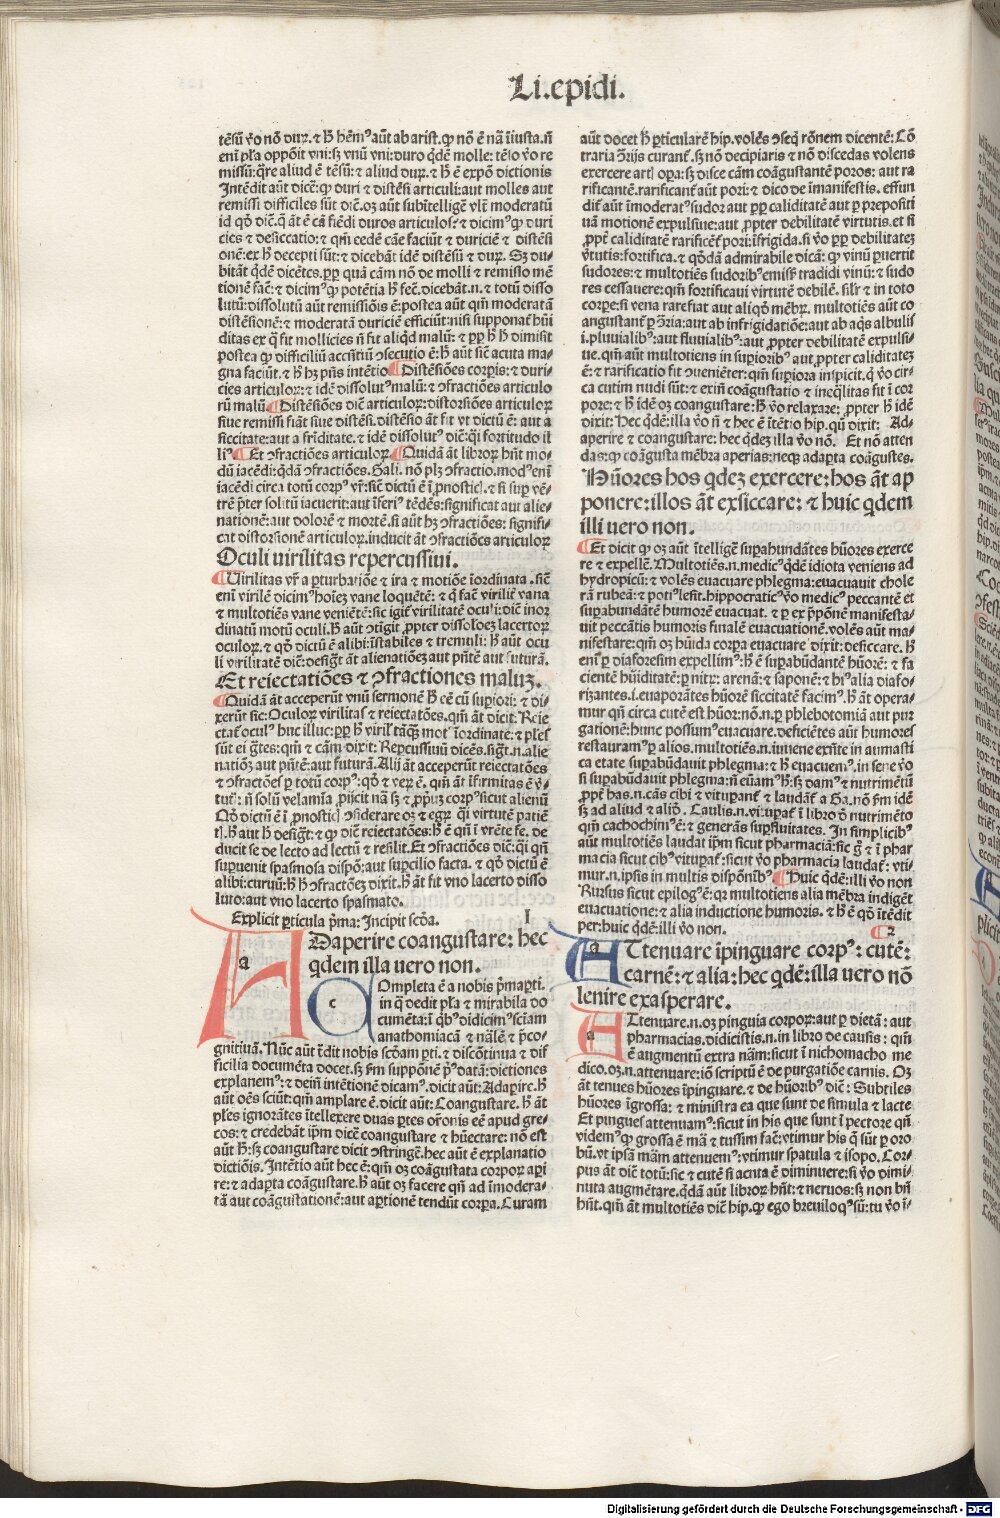 Li.epidi.
tẽsũ ṽo nõ duꝝ. ⁊ ħ hẽmꝰ aũt ab arist. ꝙ nõ ẽ nã ĩiusta. ñ
enĩ pl̃a oppõit vni: sꝫ vnũ vni: duro q̃dẽ molle: tẽso ṽo re
missũ: q̃re aliud ẽ tẽsũ: ⁊ aliud duꝝ. ⁊ ħ ẽ expõ dictionis
Intẽdit aũt dicẽ: ꝙ duri ⁊ distẽsi articuli: aut molles aut
remissi difficiles sũt diẽ. oꝫ aũt subĩtelligẽ vl̃t moderatũ
id qd̃ diẽ. q̃ ãt ẽ cã fiẽdi duros articulos: ⁊ dicimꝰ ꝙ duri
cies ⁊ desiccatio: ⁊ qm̃ cedẽ cãe faciũt ⁊ duriciẽ ⁊ distẽsi
onẽ: ex ħ decepti sũt: ⁊ dicebãt idẽ distẽsũ ⁊ duꝝ. Sꝫ du-
bitãt q̃dẽ dicẽtes. ꝓp quã cãm nõ de molli ⁊ remisso mẽ
tionẽ fac̃: ⁊ dicimꝰ ꝙ potẽtia ħ fec̃. dicebãt. n. ⁊ totũ disso
lutũ: dissolutũ aũt remissiõis ẽ: postea aũt qm̃ moderatã
distẽsionẽ: ⁊ moderatã duriciẽ efficiũt: nisi supponat̃ hũi
ditas ex q̃ fit mollicies ñ fit aliqd̃ malũ: ⁊ ꝓp ħ ħ dimisit
postea ꝙ difficiliũ accñtiũ ꝯsecutio ẽ: ħ aũt sic̃ acuta ma-
gna faciũt. ⁊ ħ hꝫ pñs intẽtio Distẽsiões corpis: ⁊ duri-
cies articuloꝝ: ⁊ idẽ dissolutꝰ malũ: ⁊ ꝯfractiões articulo
rũ malũ Distẽsiões diẽ articuloꝝ: distorsiões articuloꝝ
siue remissi fiãt siue distẽsi. distẽsio ãt fit vt dictũ ẽ: aut a
siccitate: aut a frĩditate. ⁊ idẽ dissolutꝰ diẽ: qi fortitudo il
liꝰ Et ꝯfractiões articuloꝝ Quidã ãt libroꝝ hñt mo-
dũ iacẽdi: q̃dã ꝯfractiões. Gali. nõ plꝫ ꝯfractio. modꝰ enĩ
iacẽdi circa totũ corpꝰ vr̃: sic̃ dictũ ẽ ĩ pnosticꝭ. ⁊ si sup vẽ-
trẽ p̃ter solitũ iacuerit: aut ĩferiꝰ tẽdẽs: significat aut alie-
nationẽ: aut dolorẽ ⁊ mortẽ. si aũt hꝫ ꝯfractiões: signifi-
cat distorsionẽ articuloꝝ. inducit ãt ꝯfractiões articuloꝝ
Oculi uirilitas repercussiui.
Virilitas vr̃ a pturbatiõe ⁊ ira ⁊ motiõe ĩordinata. sic̃
enĩ virilẽ dicimꝰ hoĩeꝫ vane loquẽtẽ: ⁊ q̃ fac̃ virilit̃ vana
⁊ multotiẽs vane veniẽtẽ: sic igit̃ virilitatẽ oculi: diẽ inor
dinatũ motũ oculi. ħ aũt ꝯtigit ꝓpter dissoloeꝫ lacertoꝝ
oculoꝝ. ⁊ qd̃ dictũ ẽ alibi: ĩstabiles ⁊ tremuli: ħ aũt ocu
li virilitatẽ diẽ: desigt̃ ãt alienatiõeꝫ aut pñtẽ aut futurã.
Et reiectatiões ⁊ ꝯfractiones maluꝫ.
Quidã ãt acceperũt vnũ sermonẽ ħ cẽ cũ supiori: ⁊ di-
xerũt sic: Oculoꝝ virilitas ⁊ reiectatões. qm̃ ãt dicit. Reie
ctat̃ oculꝰ huc illuc: pp ħ viril̃ tãqꝫ motꝰ ĩordinate: ⁊ ples̃
sũt ei g̃tes: qm̃ ⁊ cãm dixit: Repcussiuũ dicẽs. sigt̃. n. alie
natiõꝫ aut pñtẽ: aut futurã. Alij ãt acceperũt reiectatões
⁊ ꝯfractões̃ p totũ corpꝰ: qd̃ ⁊ veꝝ ẽ. qm̃ ãt ĩfirmitas ẽ ṽ-
tut̃: ñ solũ velamĩa ꝓijcit nã sꝫ ⁊ ꝓpiuꝫ corpꝰ sicut alienũ
Qd̃ dictũ ẽ ĩ pnosticꝭ ꝯsiderare oꝫ ⁊ egꝝ qi virtutẽ patiẽ
tꝭ. ħ aut ħ desigt̃: ⁊ ꝙ diẽ reiectatões: ħ ẽ qñ ĩ vrẽte se. de
ducit se de lecto ad lectũ ⁊ resilit. Et ꝯfractiões diẽ: qi qñ
supuenit spasmosa dispõ: aut supcilio facta. ⁊ qd̃ dictũ ẽ
alibi: curuũ: ħ ħ ꝯfractões̃ dixit. ħ ãt fit vno lacerto disso
luto: aut vno lacerto spasmato.
Explicit pticula pm̃a: Incipit sc̃da. I
a Daperire coangustare: hec
qdem illa uero non.
c Ompleta ẽ a nobis pm̃a pti.
in q̃ dedit pl̃a ⁊ mirabila do
cumẽta: ĩ qbꝰ didicimꝰ sciam
anathomiacã ⁊ nãlẽ ⁊ p̃co-
gnitiuã. Nũc aũt ĩdit nobis scd̃am pti. ⁊ discõtinua ⁊ dif
ficilia documẽta docet. sꝫ fm̃ suppõnẽ pꝰ datã: dictiones
explanemꝰ: ⁊ dein̄ intẽtionẽ dicamꝰ. dicit aũt: Adaperire. ħ
aũt oẽs sciũt: qm̃ amplare ẽ. dicit aũt: Coangustare. ħ ãt
ples̃ ignorãtes ĩtellexere duas ptes or̃onis eẽ apud gre-
cos: ⁊ credebãt ipm̃ dicẽ coangustare ⁊ hũectare: nõ est
aũt ħ: sꝫ coangustare dicit ꝯstringẽ. hec aũt ẽ explanatio
dictiõis. Intẽtio aũt hec ẽ: qm̃ oꝫ coãgustata corpoꝝ api
re: ⁊ adapta coãgustare. ħ aũt oꝫ facere qm̃ ad ĩmodera-
tã aut coãgustationẽ: aut aptionẽ tendũt corpa. Curam
aũt docet ħ pticularẽ hip. volẽs ꝯseq̃ rõnem dicentẽ: Cõ
traria ꝯ̃ijs curant̃. sꝫ nõ decipiaris ⁊ nõ discedas volens
exercere artꝭ opa: sꝫ disce cãm coãgustantẽ poros: aut ra
rificantẽ. rarificant̃ aũt pori: ⁊ dico de ĩmanifestis. effun
dit̃ aũt ĩmoderatꝰ sudor aut ꝓp caliditatẽ aut p prepositi
uã motionẽ expulsiue: aut ꝓpter debilitatẽ virtutis. et si
ꝓpt̃ caliditatẽ rarificẽt̃ pori: ĩfrigida. si ṽo ꝓp debilitateꝫ
ṽtutis: fortifica. ⁊ qd̃dã admirabile dicã: ꝙ vinũ puertit
sudores: ⁊ multotiẽs sudoribꝰ emissꝭ tradidi vinũ: ⁊ sudo
res cessauere: qm̃ fortificaui virtutẽ debilẽ. silr̃ ⁊ in toto
corpe: si vena rarefiat aut aliqd̃ mẽbꝝ. multotiẽs aũt co
angustant̃ p ꝯ̃ria: aut ab infrigidatiõe: aut ab aqs albulis
.i. pluuialibꝰ: aut fluuialibꝰ: aut ꝓpter debilitatẽ expulsi-
ue. qm̃ aũt multotiens in supioribꝰ aut ꝓpter caliditateꝫ
ẽ: ⁊ rarificatio fit ꝯueniẽter: qm̃ supiora inspicit. q̃ ṽo cir-
ca cutim nudi sũt: ⁊ exim̃ coãgustatio ⁊ ineq̃litas fit ĩ cor
pore: ⁊ ħ idẽ oꝫ coangustare: ħ ṽo relaxare: ꝓpter ħ idẽ
dixit: Hec q̃dẽ: illa ṽo ñ ⁊ hec ẽ ĩtẽtio hip. qũ dixit: Ad-
aperire ⁊ coangustare: hec q̃deꝫ illa ṽo nõ. Et nõ atten
das: ꝙ coãgusta mẽbra aperias: neqꝫ adapta coãgustes.
Hũores hos qdeꝫ exercere: hos ãt ap
ponere: illos ãt exsiccare: ⁊ huic qdem
illi uero non.
Et dicit ꝙ oꝫ aũt ĩtelligẽ supahundãtes hũores exerce
re ⁊ expellẽ. Multotiẽs. n. medicꝰ q̃dẽ idiota veniens ad
hydropicũ: ⁊ volẽs euacuare phlegma: euacuauit chole
rã rubeã: ⁊ potiꝰ lesit. hippocraticꝰ ṽo medicꝰ peccantẽ et
supabundãtẽ humorẽ euacuat. ⁊ p ex p̃põnẽ manifesta-
uit peccãtis humoris finalẽ euacuationẽ. volẽs aũt ma-
nifestare: qm̃ oꝫ hũida corpa euacuare dixit: desiccare. ħ
enĩ p diaforesim expellimꝰ: ħ ẽ supabũdantẽ hũorẽ: ⁊ fa
cientẽ hũiditatẽ: p nitꝝ: arenã: ⁊ saponẽ: ⁊ hiꝰ alia diafo-
rizantes. i. euaporãtes hũorẽ siccitatẽ facimꝰ. ħ ãt opera-
mur qm̃ circa cutẽ est hũor: nõ. n. p phlebotomiã aut pur
gationẽ: hunc possumꝰ euacuare. deficiẽtes aũt humores
restauramꝰ p alios. multotiẽs. n. iuuene exñte in aumasti
ca etate supabũdauit phlegma: ⁊ ħ euacuemꝰ. in sene ṽo
si supabũdauit phlegma: ñ euãmꝰ ħ: sꝫ dam̃ ⁊ nutrimẽtũ
ꝓpt̃ has. n. cãs cibi ⁊ vitupant̃ ⁊ laudãt̃ a Ga. nõ fm̃ idẽ
sꝫ ad aliud ⁊ aliõ. Caulis. n. vitupat̃ ĩ libro d̃ nutrimẽto
qm̃ cachochimꝰ ẽ: ⁊ generãs supfluitates. In simplicibꝰ
aũt multotiẽs laudat ipm̃ sicut pharmacia: sic g̃ ⁊ ĩ phar
macia sicut cibꝰ vitupat̃: sicut ṽo pharmacia laudat̃: vti-
mur. n. ipsis in multis dispõnibꝰ Huic qdẽ: illi ṽo non
Rursus sicut epilogꝰ ẽ: qꝛ multotiens alia mẽbra indigẽt
euacuatione: ⁊ alia inductione humoris. ⁊ ħ ẽ qd̃ ĩtẽdit
per: huic qdẽ: illi ṽo non. 2
a Ttenuare ĩpinguare corpꝰ: cutẽ:
carnẽ: ⁊ alia: hec qdẽ: illa uero nõ
lenire exasperare.
a Ttenuare. n. oꝫ pinguia corpoꝝ: aut p dietã: aut
pharmacias. didicistis. n. in libro de causis: qm̃
ẽ augmentũ extra nãm: sicut ĩ nichomacho me
dico. oꝫ. n. attenuare: iõ scriptũ ẽ de purgatiõe carnis. Oꝫ
ãt tenues hũores ĩpinguare. ⁊ de hũoribꝰ diẽ: Subtiles
hũores ĩgrossa: ⁊ ministra ea que sunt de simula ⁊ lacte
Et pingues attenuamꝰ: sicut in his que sunt ĩ pectore qñ
videmꝰ ꝙ grossa ẽ mã ⁊ tussim fac̃: vtimur his q̃ sũt p oro
bũ. vt ipsã mãm attenuemꝰ: vtimur spatula ⁊ isopo. Cor-
pus ãt diẽ totũ: sic ⁊ cutẽ si acuta ẽ diminuere: si ṽo dimi-
nuta augmẽtare. q̃dã aũt libroꝝ hñt: ⁊ neruos: sꝫ non bñ
hñt. qm̃ ãt multotiẽs diẽ hip. ꝙ ego breuiloqꝰ sũ: tu ṽo ĩ-
Digitalisierung gefördert durch die Deutsche Forschungsgemeinschaft - DFG